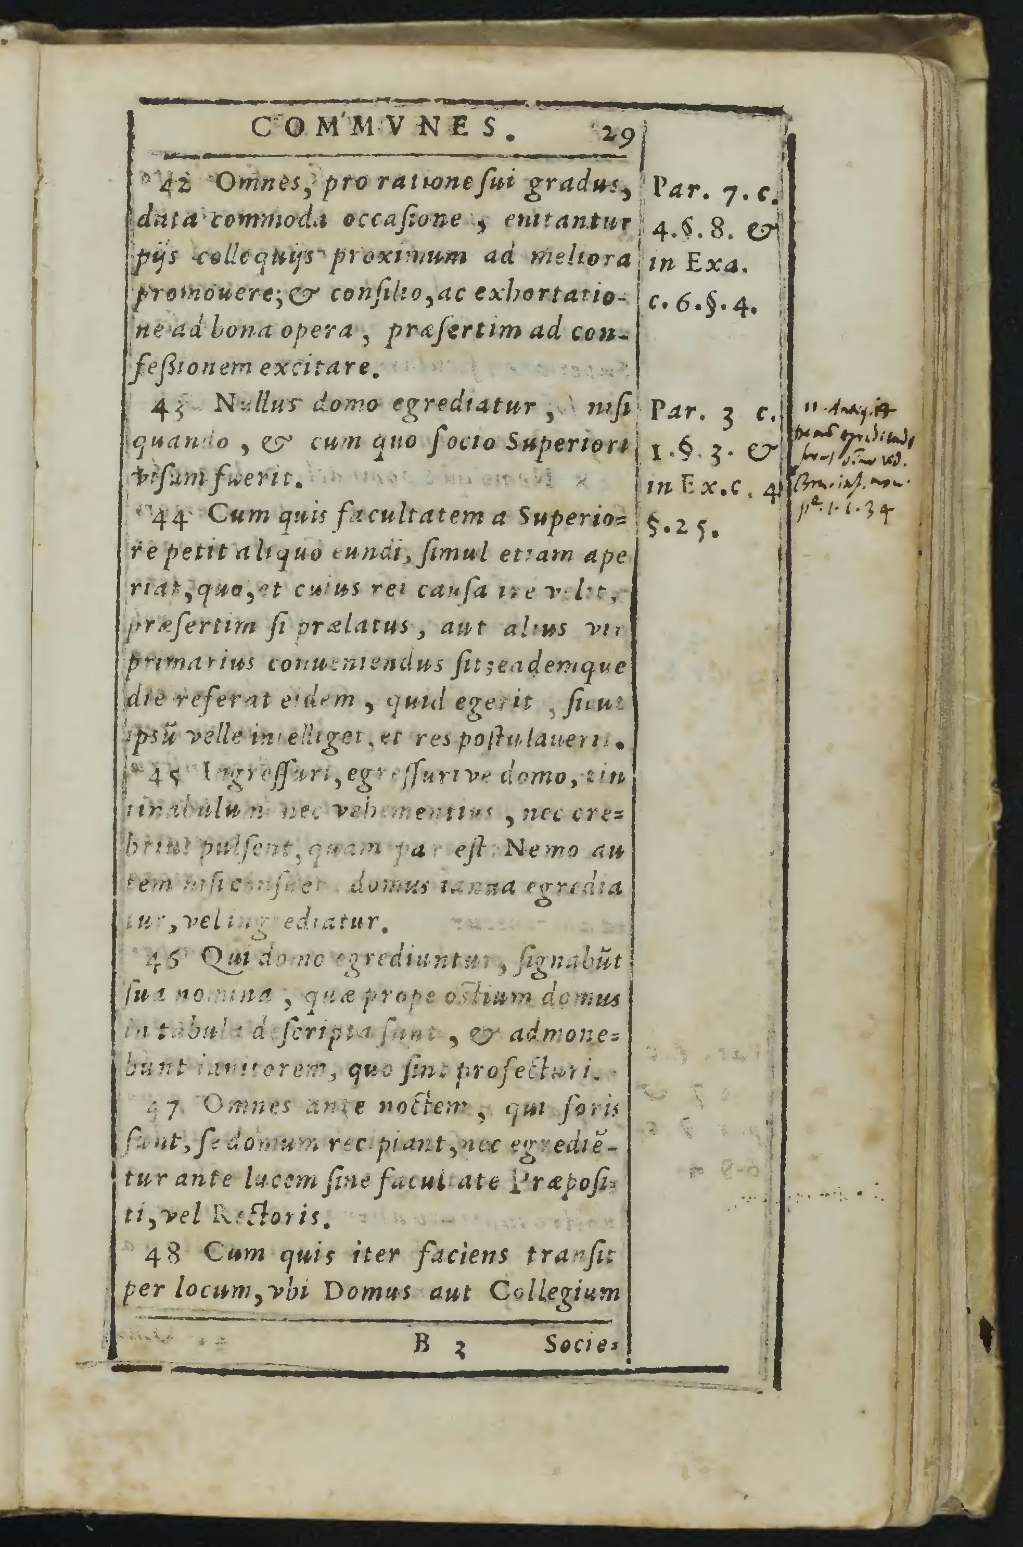 COMMVNES. 29
42 Omnes, pro ratione ſui gradus,
data commoda occaſione, enitantur
pijs colloquijs proximum ad meliora
promouere; & conſilio, ac exhortatio-
ne ad bona opera, præſertim ad con-
feßionem excitare.
43 Nullus domo egrediatur, niſi
quando, & cum quo ſocio Superiori
viſum fuerit.
44 Cum quis facultatem a Superio=
re petit aliquo eundi, ſimul etiam ape
riat, quo, et cuius rei cauſa ire velit,
præſertim ſi prælatus, aut alius vir
primarius conueniendus ſit; eademque
die referat eidem, quid egerit, ſicut
ipsũ velle intelliget, et res poſtulauerit.
45 Ingreſſuri, egreſſuri ve domo, tin
tinabulum nec vehementius, nec cre=
brius pulſent, quam par eſt. Nemo au
tem niſi conſueta domus ianua egredia
tur, vel ingrediatur.
46 Qui domo egrediuntur, ſignabũt
ſua nomina, quæ prope oſtium domus
in tabula deſcripta ſunt, & admone=
bunt ianitorem, quo ſint profecturi.
47 Omnes ante noctem, qui foris
ſunt, ſe domum recipiant, nec egrediẽ-
tur ante lucem ſine facultate Præpoſi=
ti, vel Rectoris.
48 Cum quis iter faciens tranſit
per locum, vbi Domus aut Collegium
B 3 Socie=
Par. 7. c.
4. §. 8. &
in Exa.
c. 6. §. 4.
Par. 3 c.
1. §. 3. &
in Ex. c. 4
§. 25.